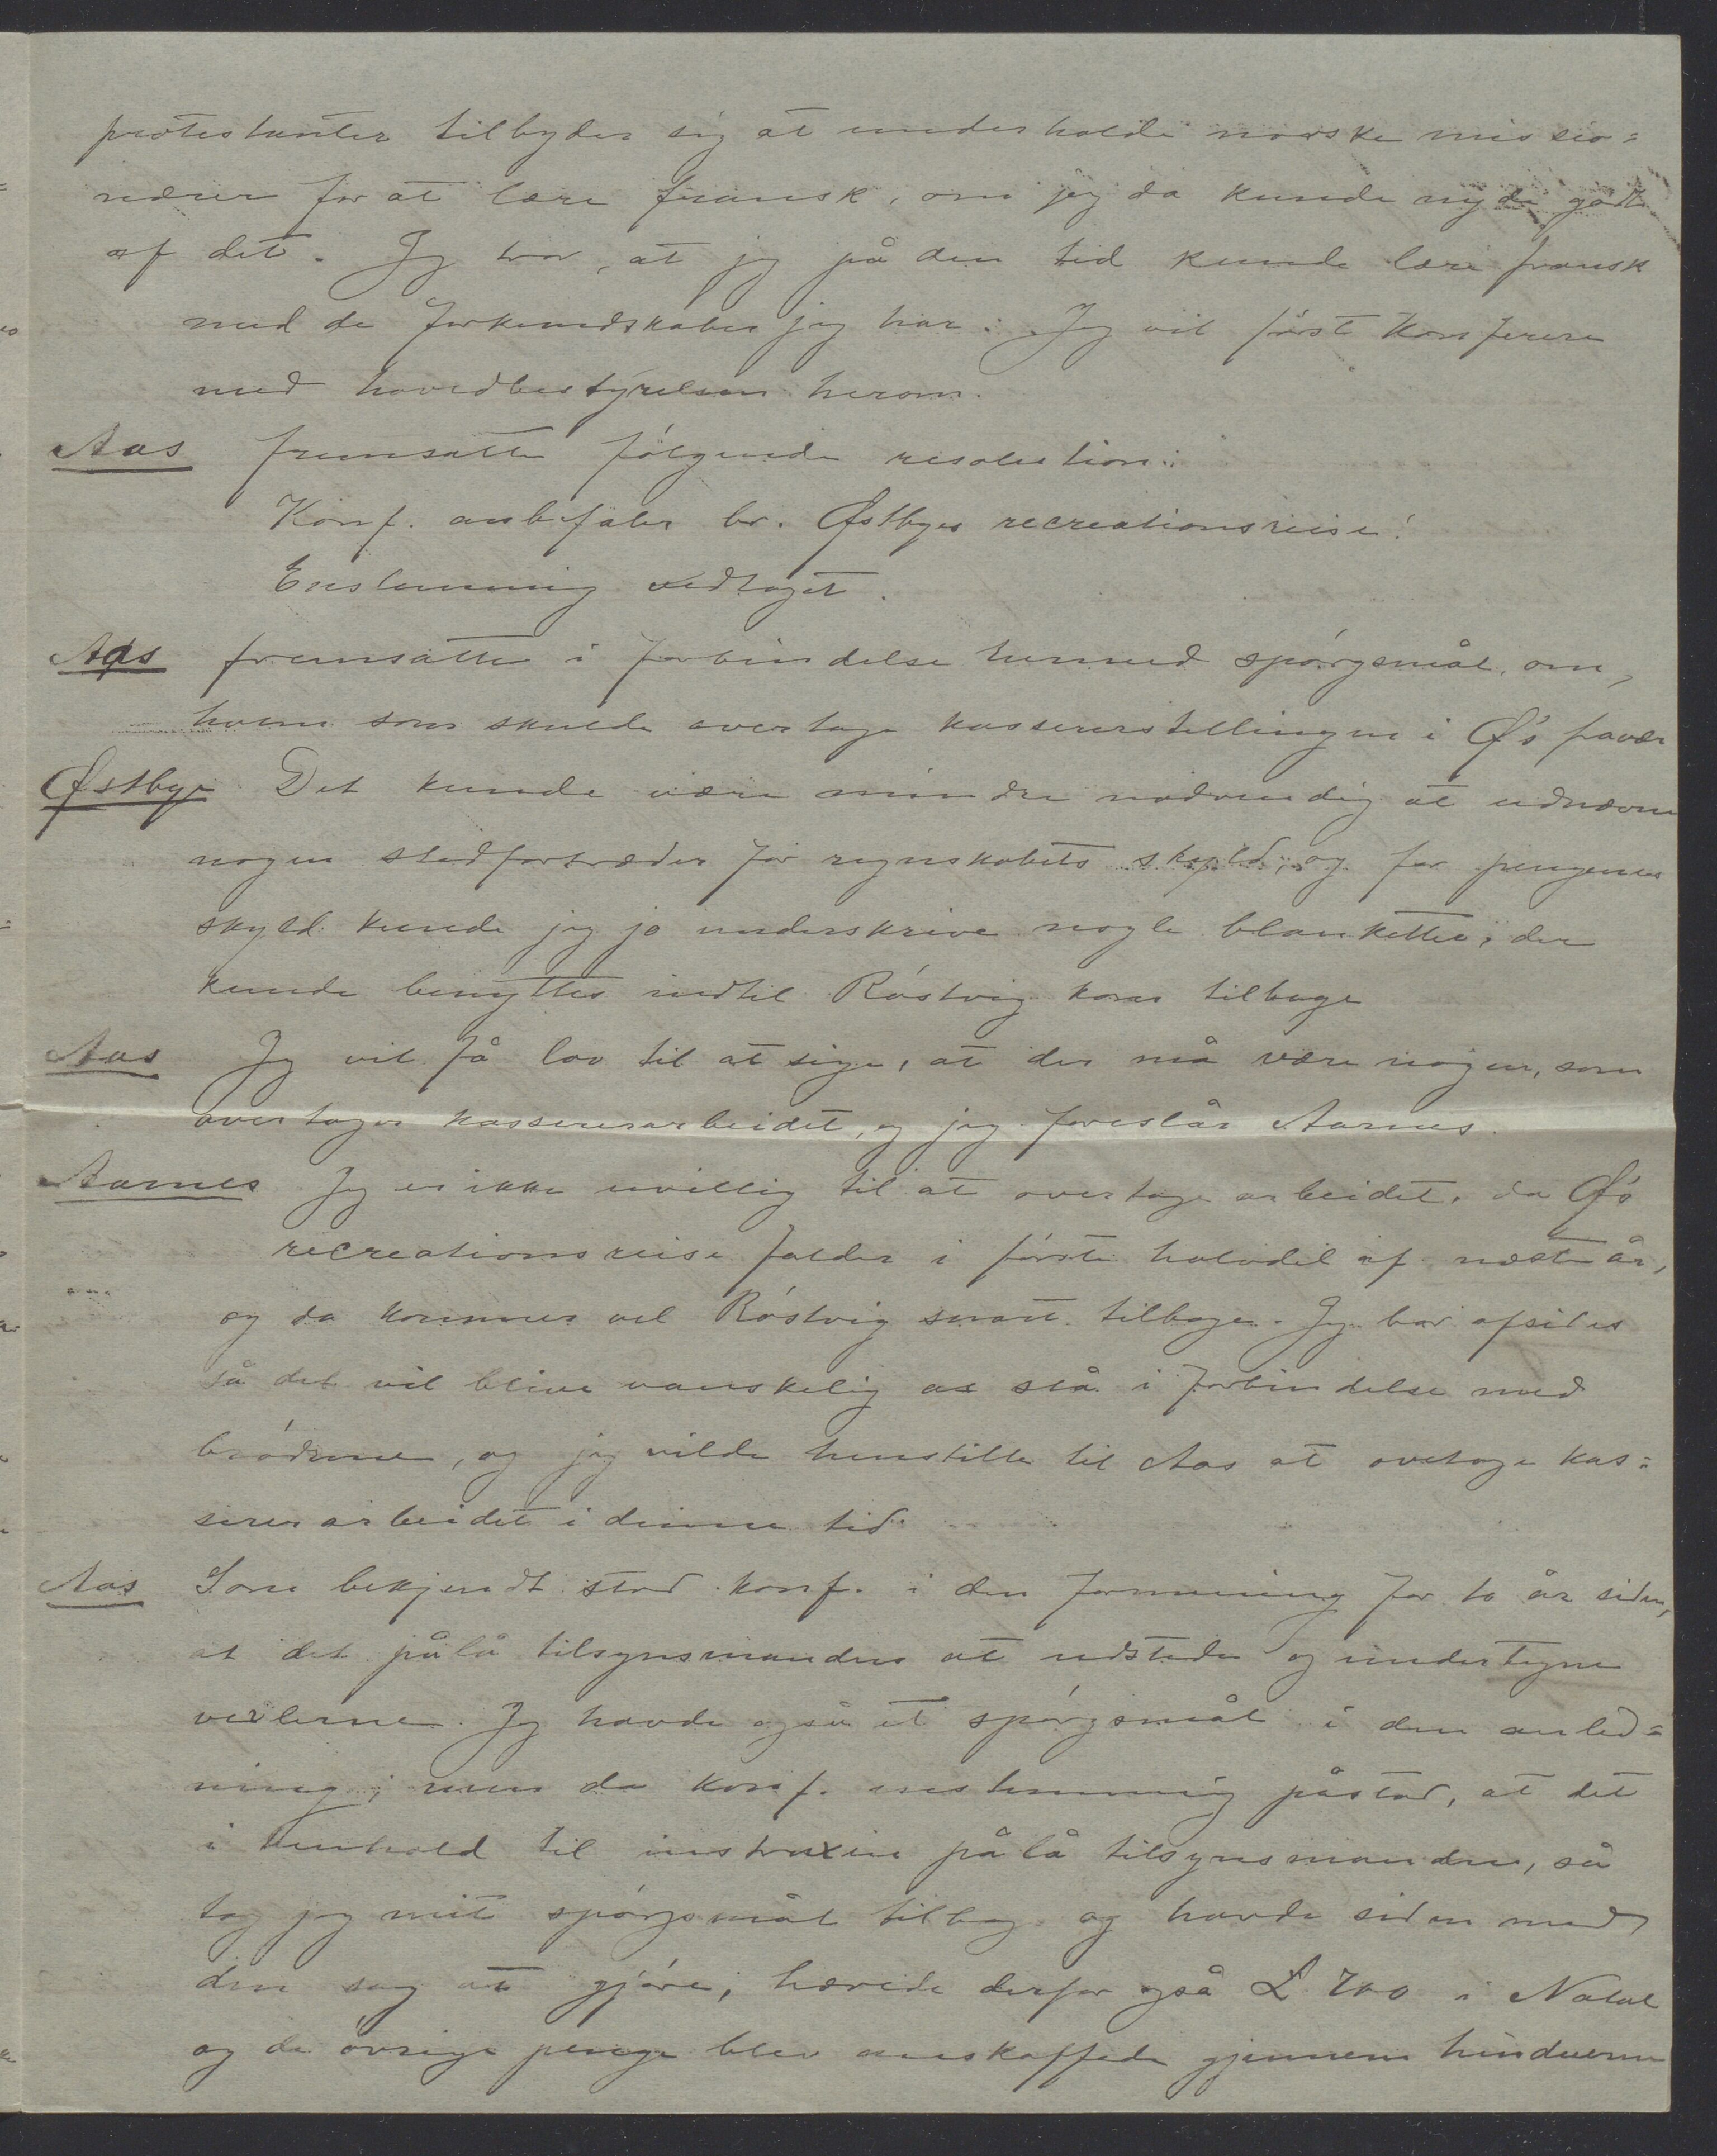 protestanter tilbyder sig at underholde norske missio=
nærer for at lære fransk, om jeg da kunde nyde godt
af det. Jeg tror, at jeg på den tid kunde lære fransk
med de forkundskaber jeg har. Jeg vil først konferere
med hovedbestyrelsen herom.
Aas fremsatte følgende resolution:
Konf. anbefaler br. Østbyes recreationsreise!
Enstemmig vedtaget.
Aas fremsatte i forbindelse hermed spørgsmål, om,
hvem som skulde overtage kassererstillingen i Ø's fravær
Østbye Det kunde være mindre nødvendig at udnævne
nogen stedfortræder for regnskabets skyld, og for pengenes
skyld kunde jeg jo underskrive nogle blanketter, der
kunde benyttes indtil Röstvig kom tilbage
Aas Jeg vil få lov til at sige, at der må være nogen, som
overtager kassererarbeidet, og jeg foreslår Aarnes.
Aarnes Jeg er ikke uvillig til at overtage arbeidet, da Ø's
recreationsreise falder i første halvdel af næste år,
og da kommer vel Röstvig snart tilbage. Jeg bor afsides
så det vil blive vanskelig at stå i forbindelse med
brødrene, og jeg vilde henstille til Aas at overtage kas=
sererarbeidet i denne tid.
Aas Som bekjendt stod konf. i den formening for to år siden,
at det pålå tilsynsmanden at udstede og undertegne
vexlerne. Jeg havde også et spørgsmål i den anled=
ning; men da konf. enstemmig påstod, at det
i henhold til instruxen pålå tilsynsmanden, så
tog jeg mit spørgsmål tilbage og havde siden med
den sag at gjøre, hævede derfor også £ 700 i Natal
og de øvrige penge blev anskaffede gjennem hinduerne